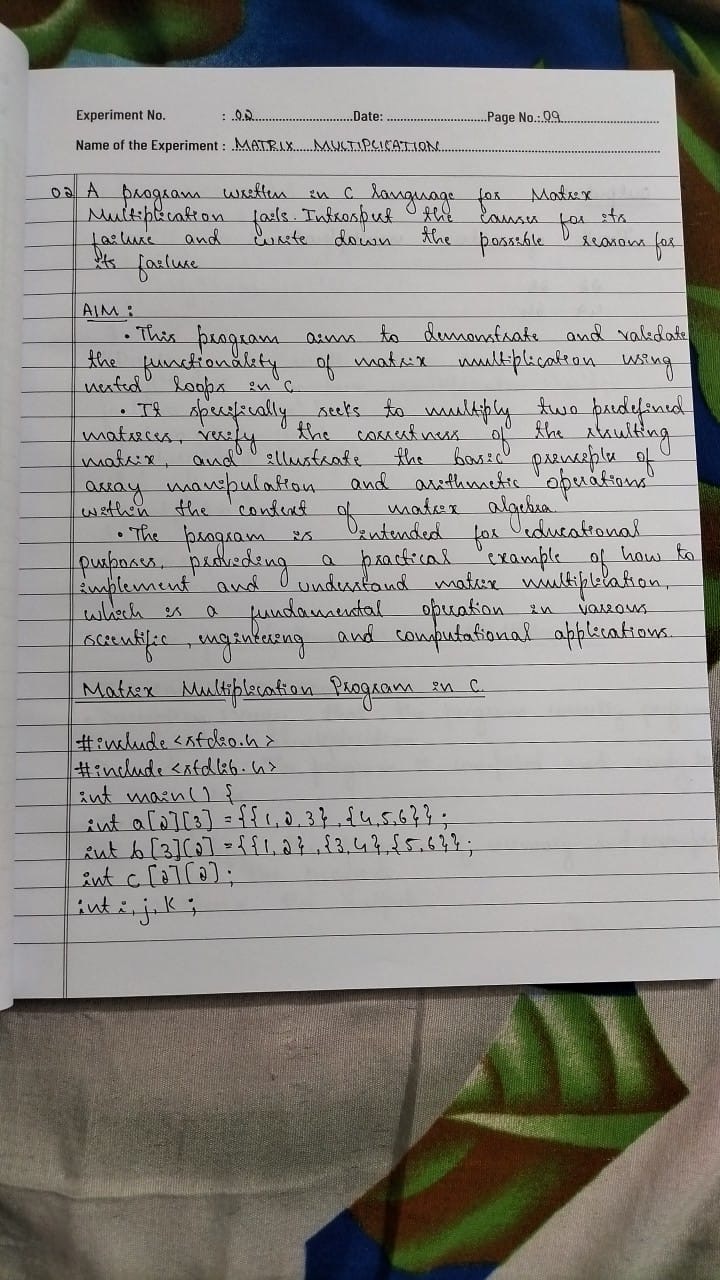 Experiment No. : 02 Date: Page No.: 09
Name of the Experiment : MATRIX MULTIPLICATION
02 A program written in C language for Matrix
Multiplication fails. Introsput the causes for its
failure and write down the possible reasons for
its failure
AIM :
• This program aims to demonstrate and validate
the functionality of matrix multiplication using
nested loops in C
• It specifically seeks to multiply two predefined
matrices, verify the correctness of the resulting
matrix, and illustrate the basic principle of
array manipulation and arithmetic operations
within the context of matrix algebra.
• The program is intended for educational
purposes, providing a practical example of how to
implement and understand matrix multiplication,
which is a fundamental operation in various
scientific, engineering and computational applications.
Matrix Multiplication Program in C.
#include <stdio.h>
#include <stdlib.h>
int main() {
int a[2][3] = {{1,2,3},{4,5,6}};
int b[3][2] = {{1,2},{3,4},{5,6}};
int c[2][2];
int i, j, k ;